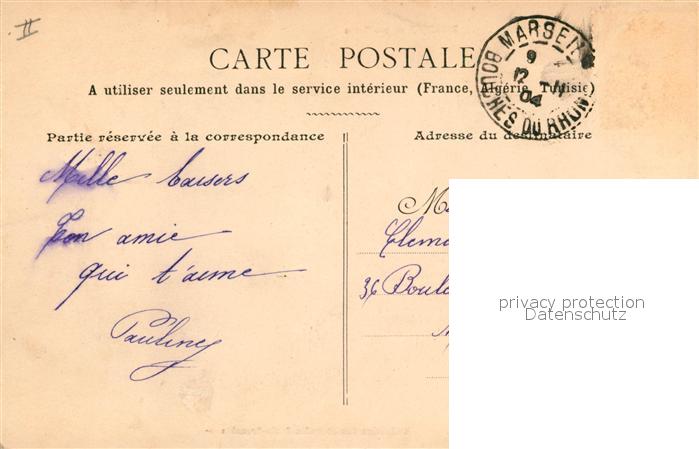 II
CARTE POSTALE
A utiliser seulement dans le service intérieur (France, Algérie, Tunisie)
MARSEIL
BOUCHES DU RHONE
9
12 - 11
04
Partie réservée à la correspondance
Adresse du destinataire
Mille baisers
Ton amie
qui t'aime
Pauline
M
Cleme
36 Boule
privacy protection
Datenschutz